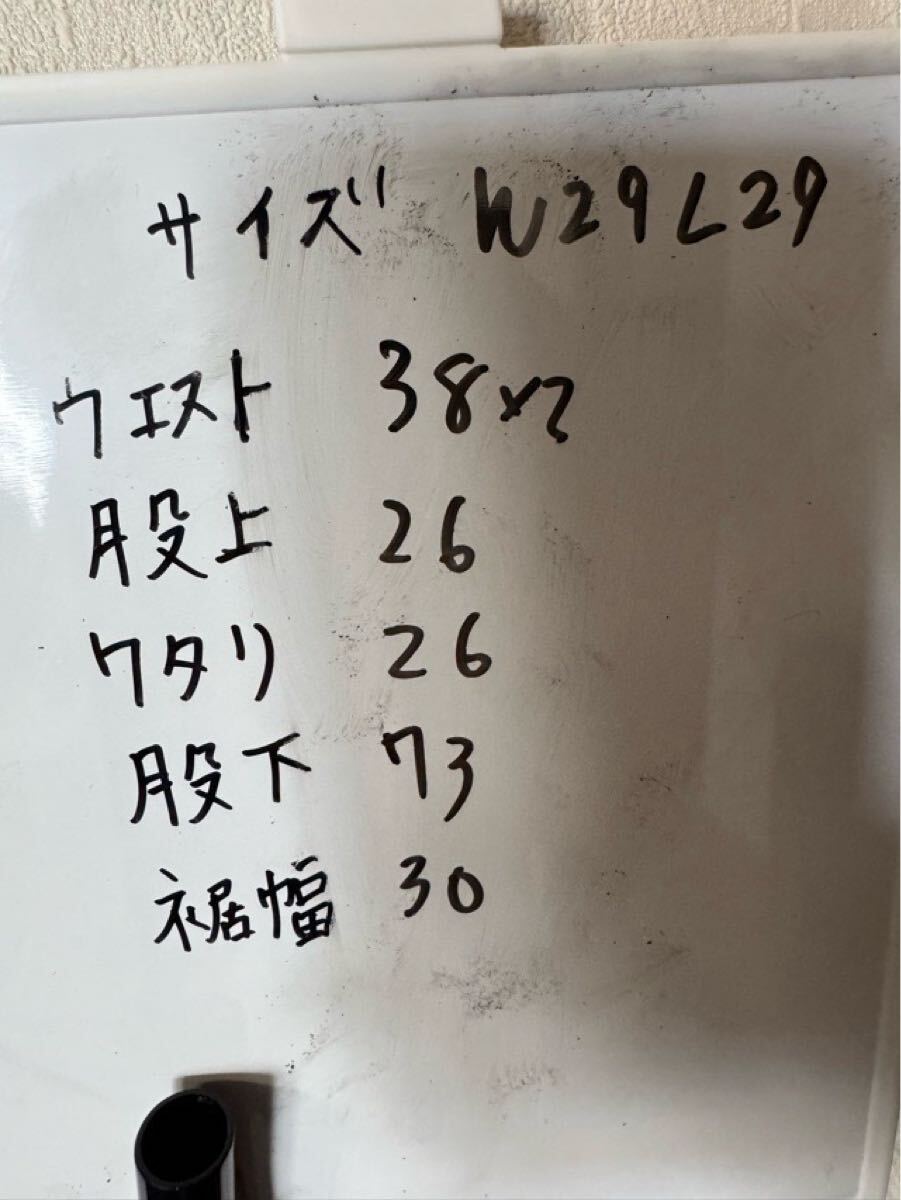 サイズ W29 L29
ウエスト 38×2
股上 26
ワタリ 26
股下 73
裾幅 30